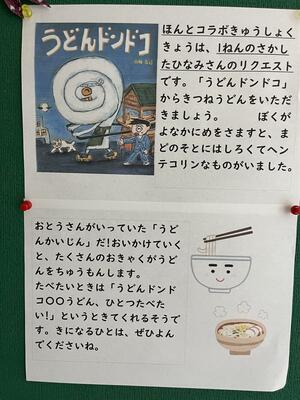 うどんドンドコ
ほんとコラボきゅうしょく
きょうは、1ねんのさかし
たひなみさんのリクエスト
です。「うどんドンドコ」
からきつねうどんをいただ
きましょう。　ぼくが
よなかにめをさますと、ま
どのそとにはしろくてヘン
テコリンなものがいました。
おとうさんがいっていた「うど
んかいじん」だ!おいかけていく
と、たくさんのおきゃくがうど
んをちゅうもんします。
たべたいときは「うどんドンド
コ〇〇うどん、ひとつたべた
い!」というときてくれるそうで
す。きになるひとは、ぜひよん
でくださいね。